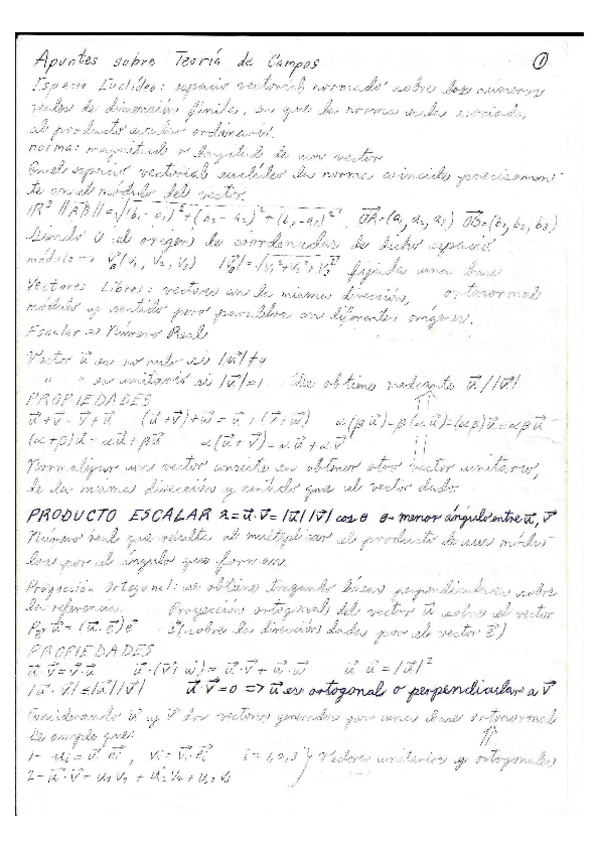 Apuntes sobre Teoría de Campos ①
Espacio Euclídeo: espacio vectorial normado sobre los números
reales de dimensión finita, en que la norma es la asociada
al producto escalar ordinario.
norma: magnitud o longitud de un vector
En el espacio vectorial euclídeo la norma coincide precisamen-
te con el módulo del vector.
ℝ³ ||AB|| = √(b₁-a₁)²+(b₂-a₂)²+(b₃-a₃)² , OA=(a₁, a₂, a₃) OB=(b₁, b₂, b₃)
Siendo O el origen de coordenadas de dicho espacio
módulo → (v₁, v₂, v₃) = √v₁²+v₂²+v₃² fijada una base
ortonormal
Vectores Libres: vectores en la misma dirección,
módulo y sentido pero paralelos en diferentes orígenes.
Escalar => Número Real
Vector u⃗ es no nulo si
" " es unitario si |u⃗|=1 Se obtiene mediante u⃗/|u⃗|
PROPIEDADES
u⃗+v⃗=v⃗+u⃗ (u⃗+v⃗)+w⃗=u⃗+(v⃗+w⃗) α(βu⃗)=β(αu⃗)=(αβ)u⃗=αβu⃗
(α+β)u⃗=αu⃗+βu⃗ α(u⃗+v⃗)=αu⃗+αv⃗
Normalizar un vector consiste en obtener otro vector unitario,
de la misma dirección y sentido que el vector dado.
PRODUCTO ESCALAR λ=u⃗·v⃗=|u⃗||v⃗| cos θ θ→ menor ángulo entre u⃗, v⃗
Número real que resulta al multiplicar el producto de sus módu-
los por el ángulo que forman.
Proyección Ortogonal: se obtiene trazando líneas perpendiculares sobre
la referencia. Proyección ortogonal del vector u⃗ sobre el vector
u⃗=(u⃗·e⃗)e⃗ e⃗ (sobre la dirección dada por el vector e⃗)
PROPIEDADES
u⃗·v⃗=v⃗·u⃗ u⃗·(v⃗+w⃗)=u⃗·v⃗+u⃗·w⃗ u⃗·u⃗=|u⃗|²
|u⃗·v⃗|≤|u⃗||v⃗| u⃗·v⃗=0 => u⃗ es ortogonal o perpendicular a v⃗
Considerando u⃗ y v⃗ dos vectores generados por una base ortonormal
Se cumple que:
1- uᵢ=u⃗·eᵢ , vᵢ=v⃗·eᵢ i=1,2,3 } Vectores unitarios y ortogonales
2- u⃗·v⃗=u₁v₁+u₂v₂+u₃v₃